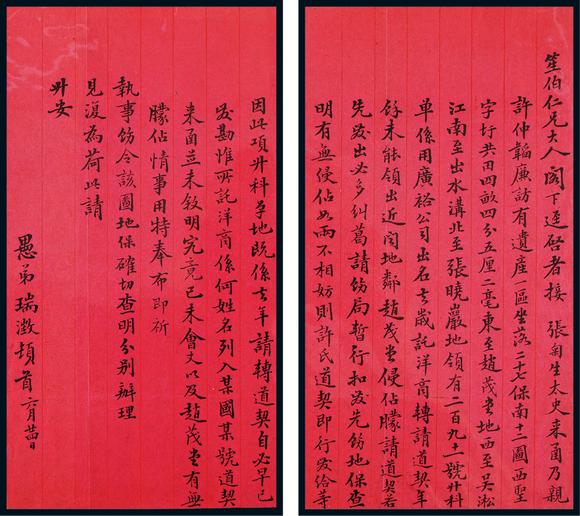 笙伯仁兄大人閣下逕啓者接 張菊生太史来函乃親
許仲韜廉訪有遺産一區坐落二十七保南十二圖西聖
字圩共田四畝四分五厘二毫東至趙茂堂地西至吴淞
江南至出水溝北至張曉巖地領有二百九十一號升科
單係用廣裕公司出名去歲託洋商轉請道契年
餘未能領出近聞地鄰趙茂堂侵佔朦請道契若
先發出必多糾葛請飭局暫行扣發先飭地保查
明有無侵佔如兩不相妨則許氏道契即行發給等
因此項升科單地既係去年請轉道契自必早已
發勘惟所託洋商係何姓名列入某國某號道契
来函並未敘明究竟已未會丈以及趙茂堂有無
朦佔情事用特奉布即祈
執事飭令該圖地保確切查明分别辦理
見復為荷此請
升安
愚弟瑞澂頓首